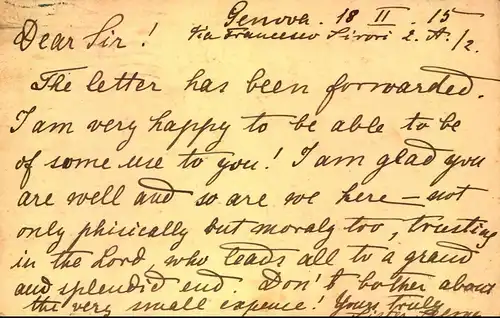 Genova. 18 II. 15
Dear Sir! Via Francesco Sivori 2. A./2.
The letter has been forwarded.
I am very happy to be able to be
of some use to you! I am glad you
are well and so are we here – not
only phisically but moraly too, trusting
in the Lord, who leads all to a grand
and splendid end. Don't bother about
the very small expence! Yours truly